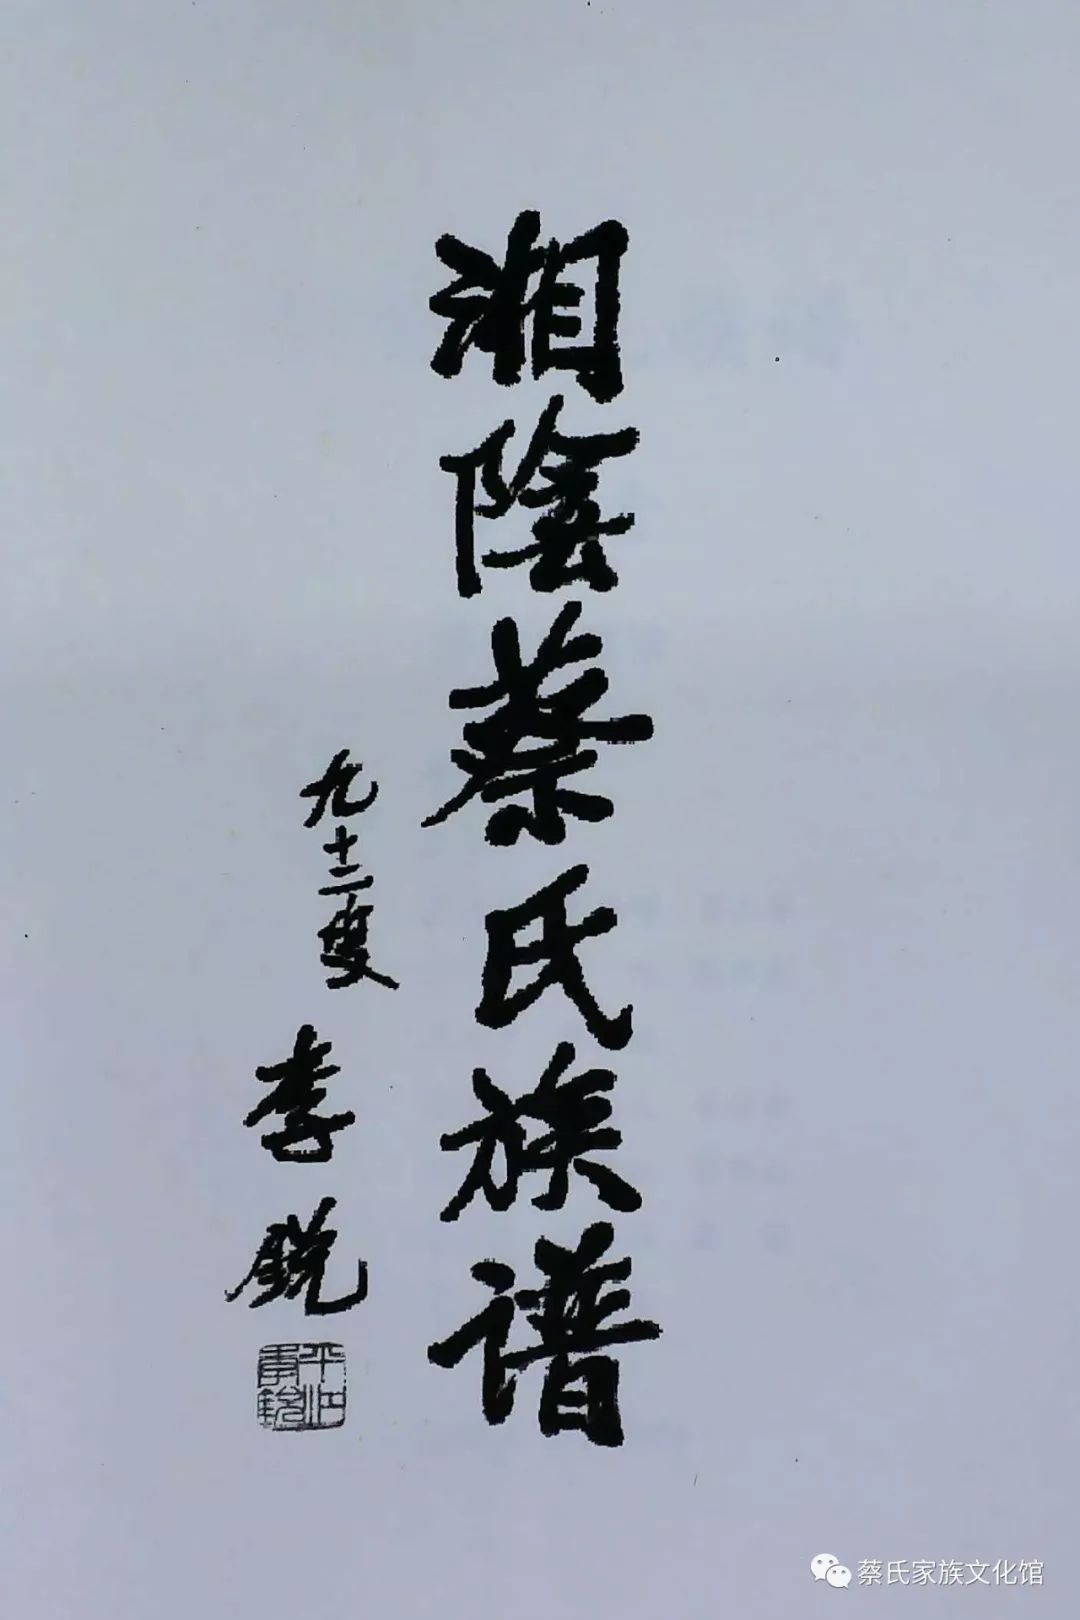 湘陰蔡氏族譜
九十二叟
李銳
蔡氏家族文化馆